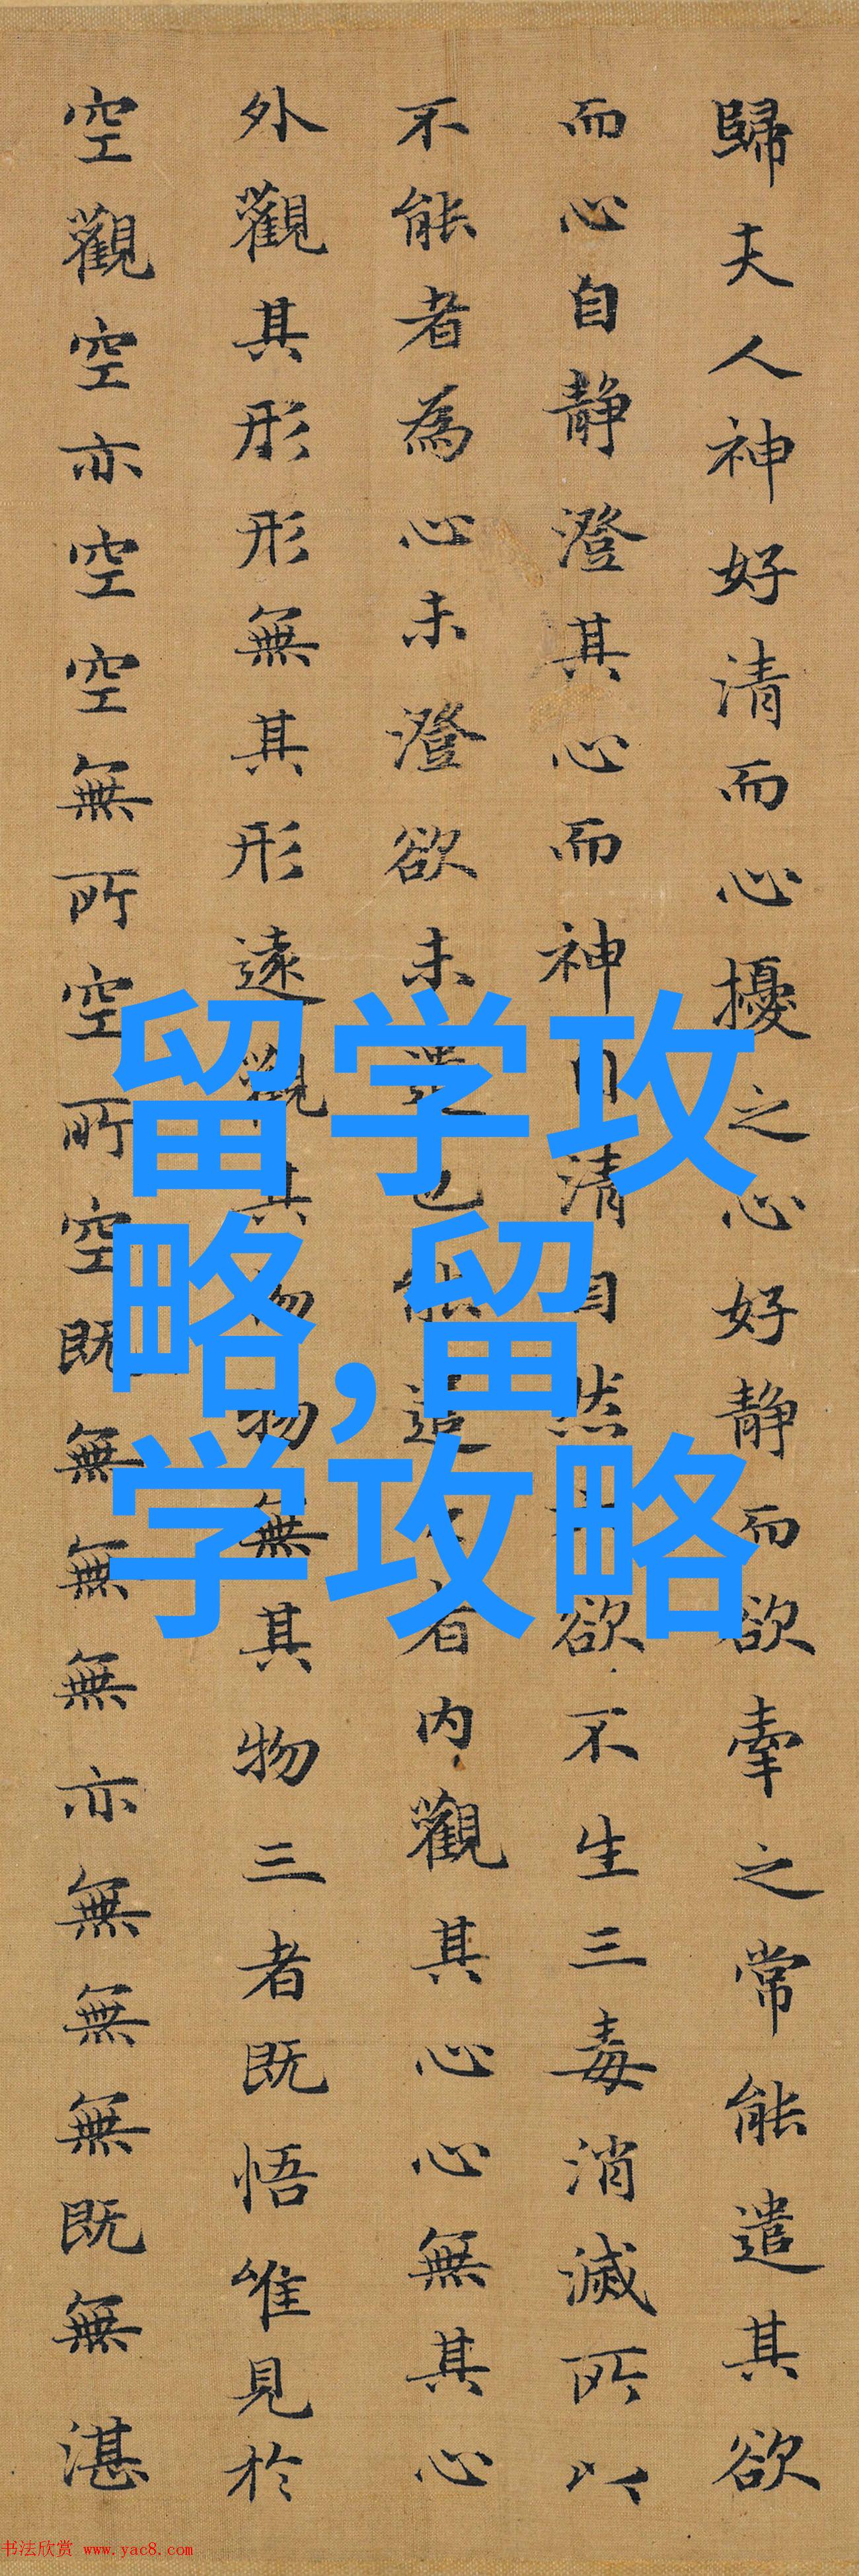 歸夫人神好清而心擾之心好静而欲牽之常能遣其欲
而心自静澄其心而神自清自然欲不生三毒消滅所以
不能者為心未澄欲未遣也能遣者内觀其心心無其心
外觀其形形無其形遠觀其物物無其物三者既悟唯見於
空觀空亦空空無所空所空既無無無亦無無無既無湛
留学攻
略,留
学攻略
书法欣赏 www.yac8.com